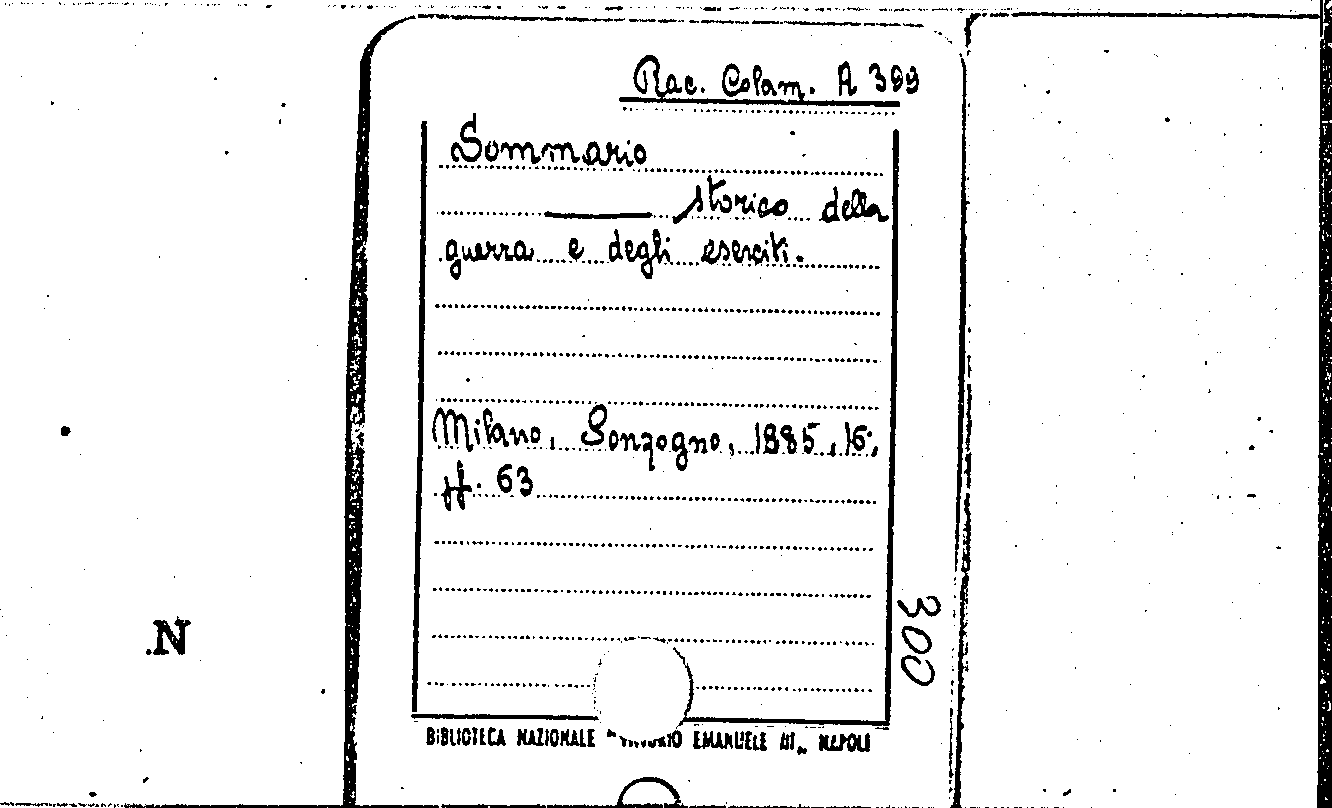 Rac. Colam. A 399
Sommario
storico della
guerra e degli eserciti.
Milano, Sonzogno, 1885, 16°,
pp. 63
300
.N
BIBLIOTECA NAZIONALE "VITTORIO EMANUELE III„ NAPOLI